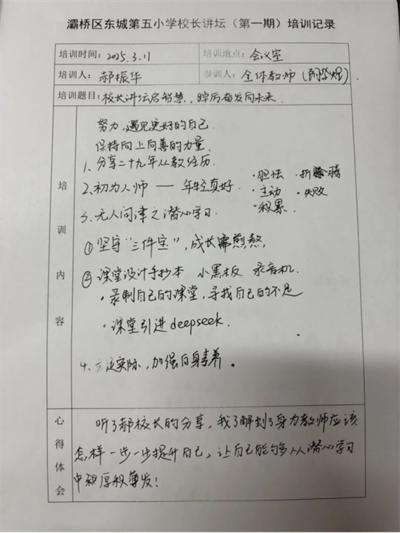 灞桥区东城第五小学校长讲坛（第一期）培训记录
培训时间：2025.3.11 培训地点：会议室
培训人：郝振华 参训人：全体教师
培训题目：校长讲坛启智慧，踔厉奋发向未来
努力，遇见更好的自己
保持向上向善的力量
1.分享二十九年从教经历
2.初为人师 — 年轻真好 ·胆怯 ·折腾
·主动 ·失败
·积累
3.无人问津之潜心学习
培训内容
①坚守“三件宝”，成长需煎熬
②课堂设计手抄本 小黑板 录音机
·录制自己的课堂，寻找自己的不足
·课堂引进deepseek.
4.立足实际，加强自身素养。
心得体会
听了郝校长的分享，我了解到了身为教师应该
怎样一步一步提升自己，让自己能够从潜心学习
中和厚积薄发！